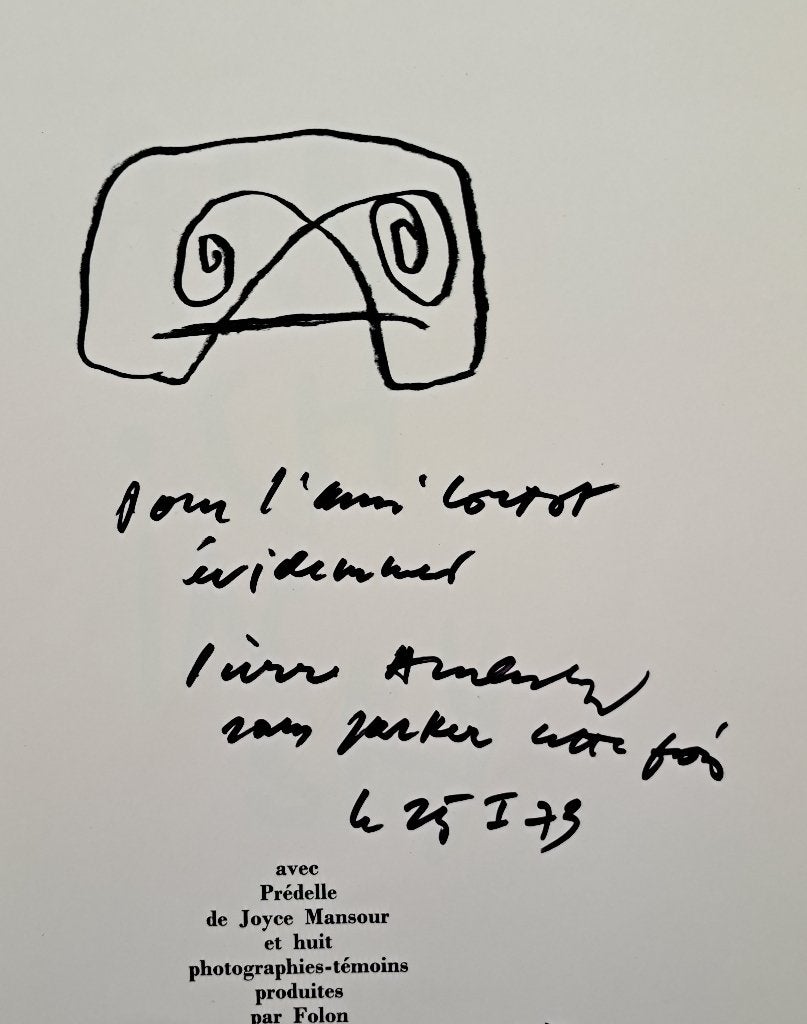 Pour l'ami Cortot
évidemment
Pierre Alechinsky
sans parker cette fois
le 25 I 79
avec
Prédelle
de Joyce Mansour
et huit
photographies-témoins
produites
par Folon